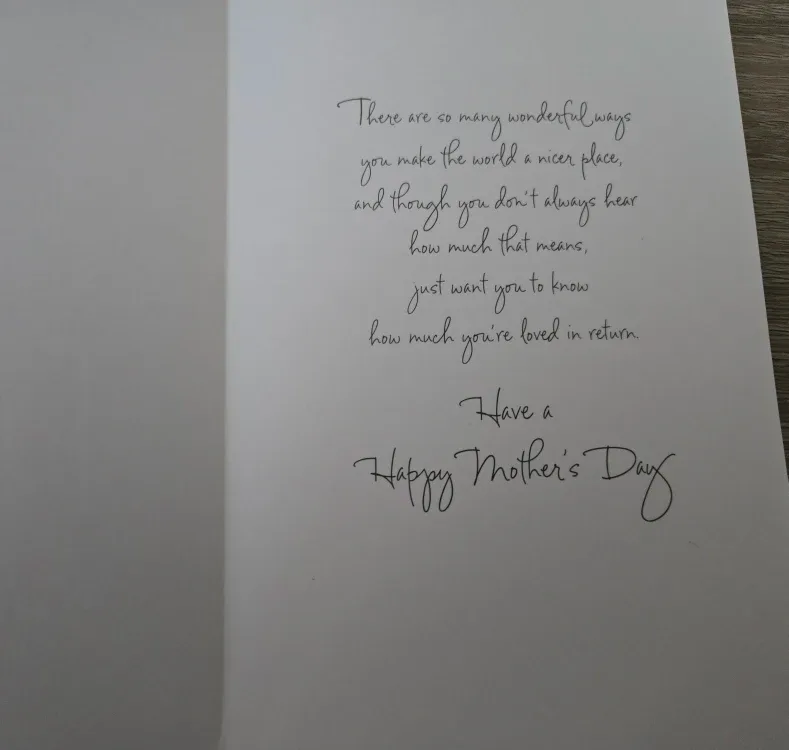 There are so many wonderful ways
you make the world a nicer place,
and though you don't always hear
how much that means,
just want you to know
how much you're loved in return.
Have a
Happy Mother's Day